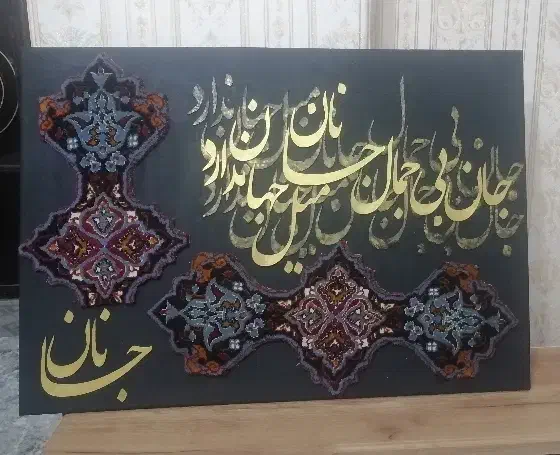 جان بی جمال جانان میل جهان ندارد
جانان